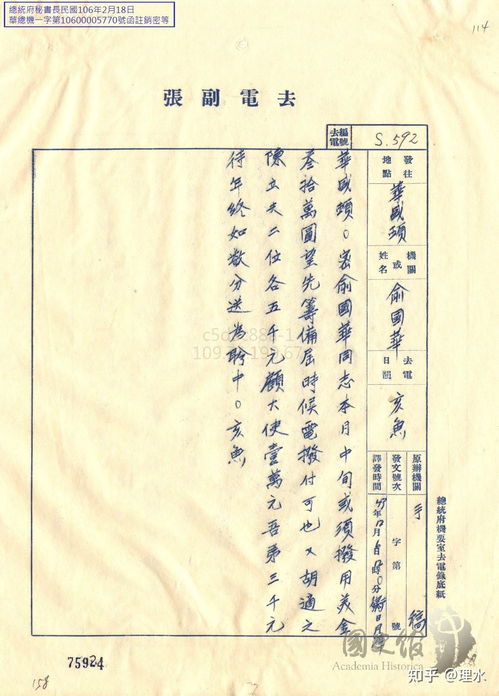 總統府秘書長民國106年2月18日
華總機一字第10600005770號函註銷密等
114
去電副張
去電編號
S.592
發往地點
華盛頓
機關或姓名
俞國華
去電日韻
亥魚
原辦機關
手稿
發文號次
字第 號
譯發時間
華盛頓。密俞國華同志本月中旬或須撥用美金
叁拾萬圓望先籌備屆時候電撥付可也又胡適之
陳立夫二位各五千元顧大使壹萬元吾弟三千元
待年終如數分送為盼中。亥魚
總統府機要室去電錄底紙
75924
158
國史館
Academia Historica
知乎 @理水